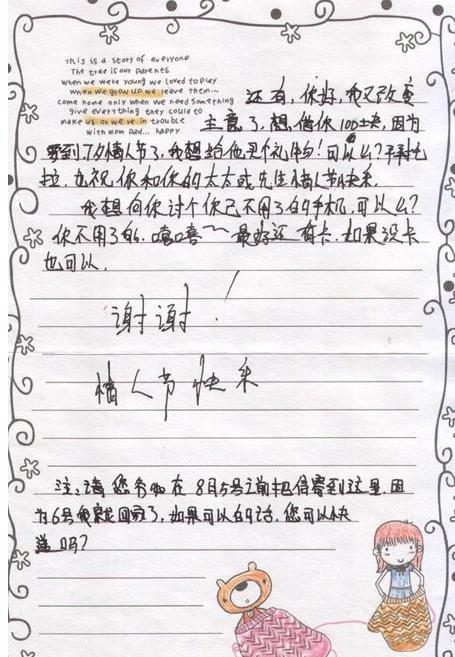 this is a story of everyone
The tree is our parents
when we were young we loved to play
when we grow up we leave them...
come home only when we need something
give everything they could to
make us or we're in trouble
with Mom Dad... happy
还有,你好,我又改变
主意了,想借你100块,因为
要到7夕情人节了,我想给他买个礼物!可以么?拜托
拉.也祝你和你的太太或先生情人节快乐.
我想向你讨个你已不用了的手机,可以么?
你不用了的.嘻嘻~~最好还有卡.如果没卡
也可以.
谢谢!
情人节快乐
注:请您务必在8月5号之前把信寄到这里.因
为6号我就回家了,如果可以的话,您可以快
递吗?